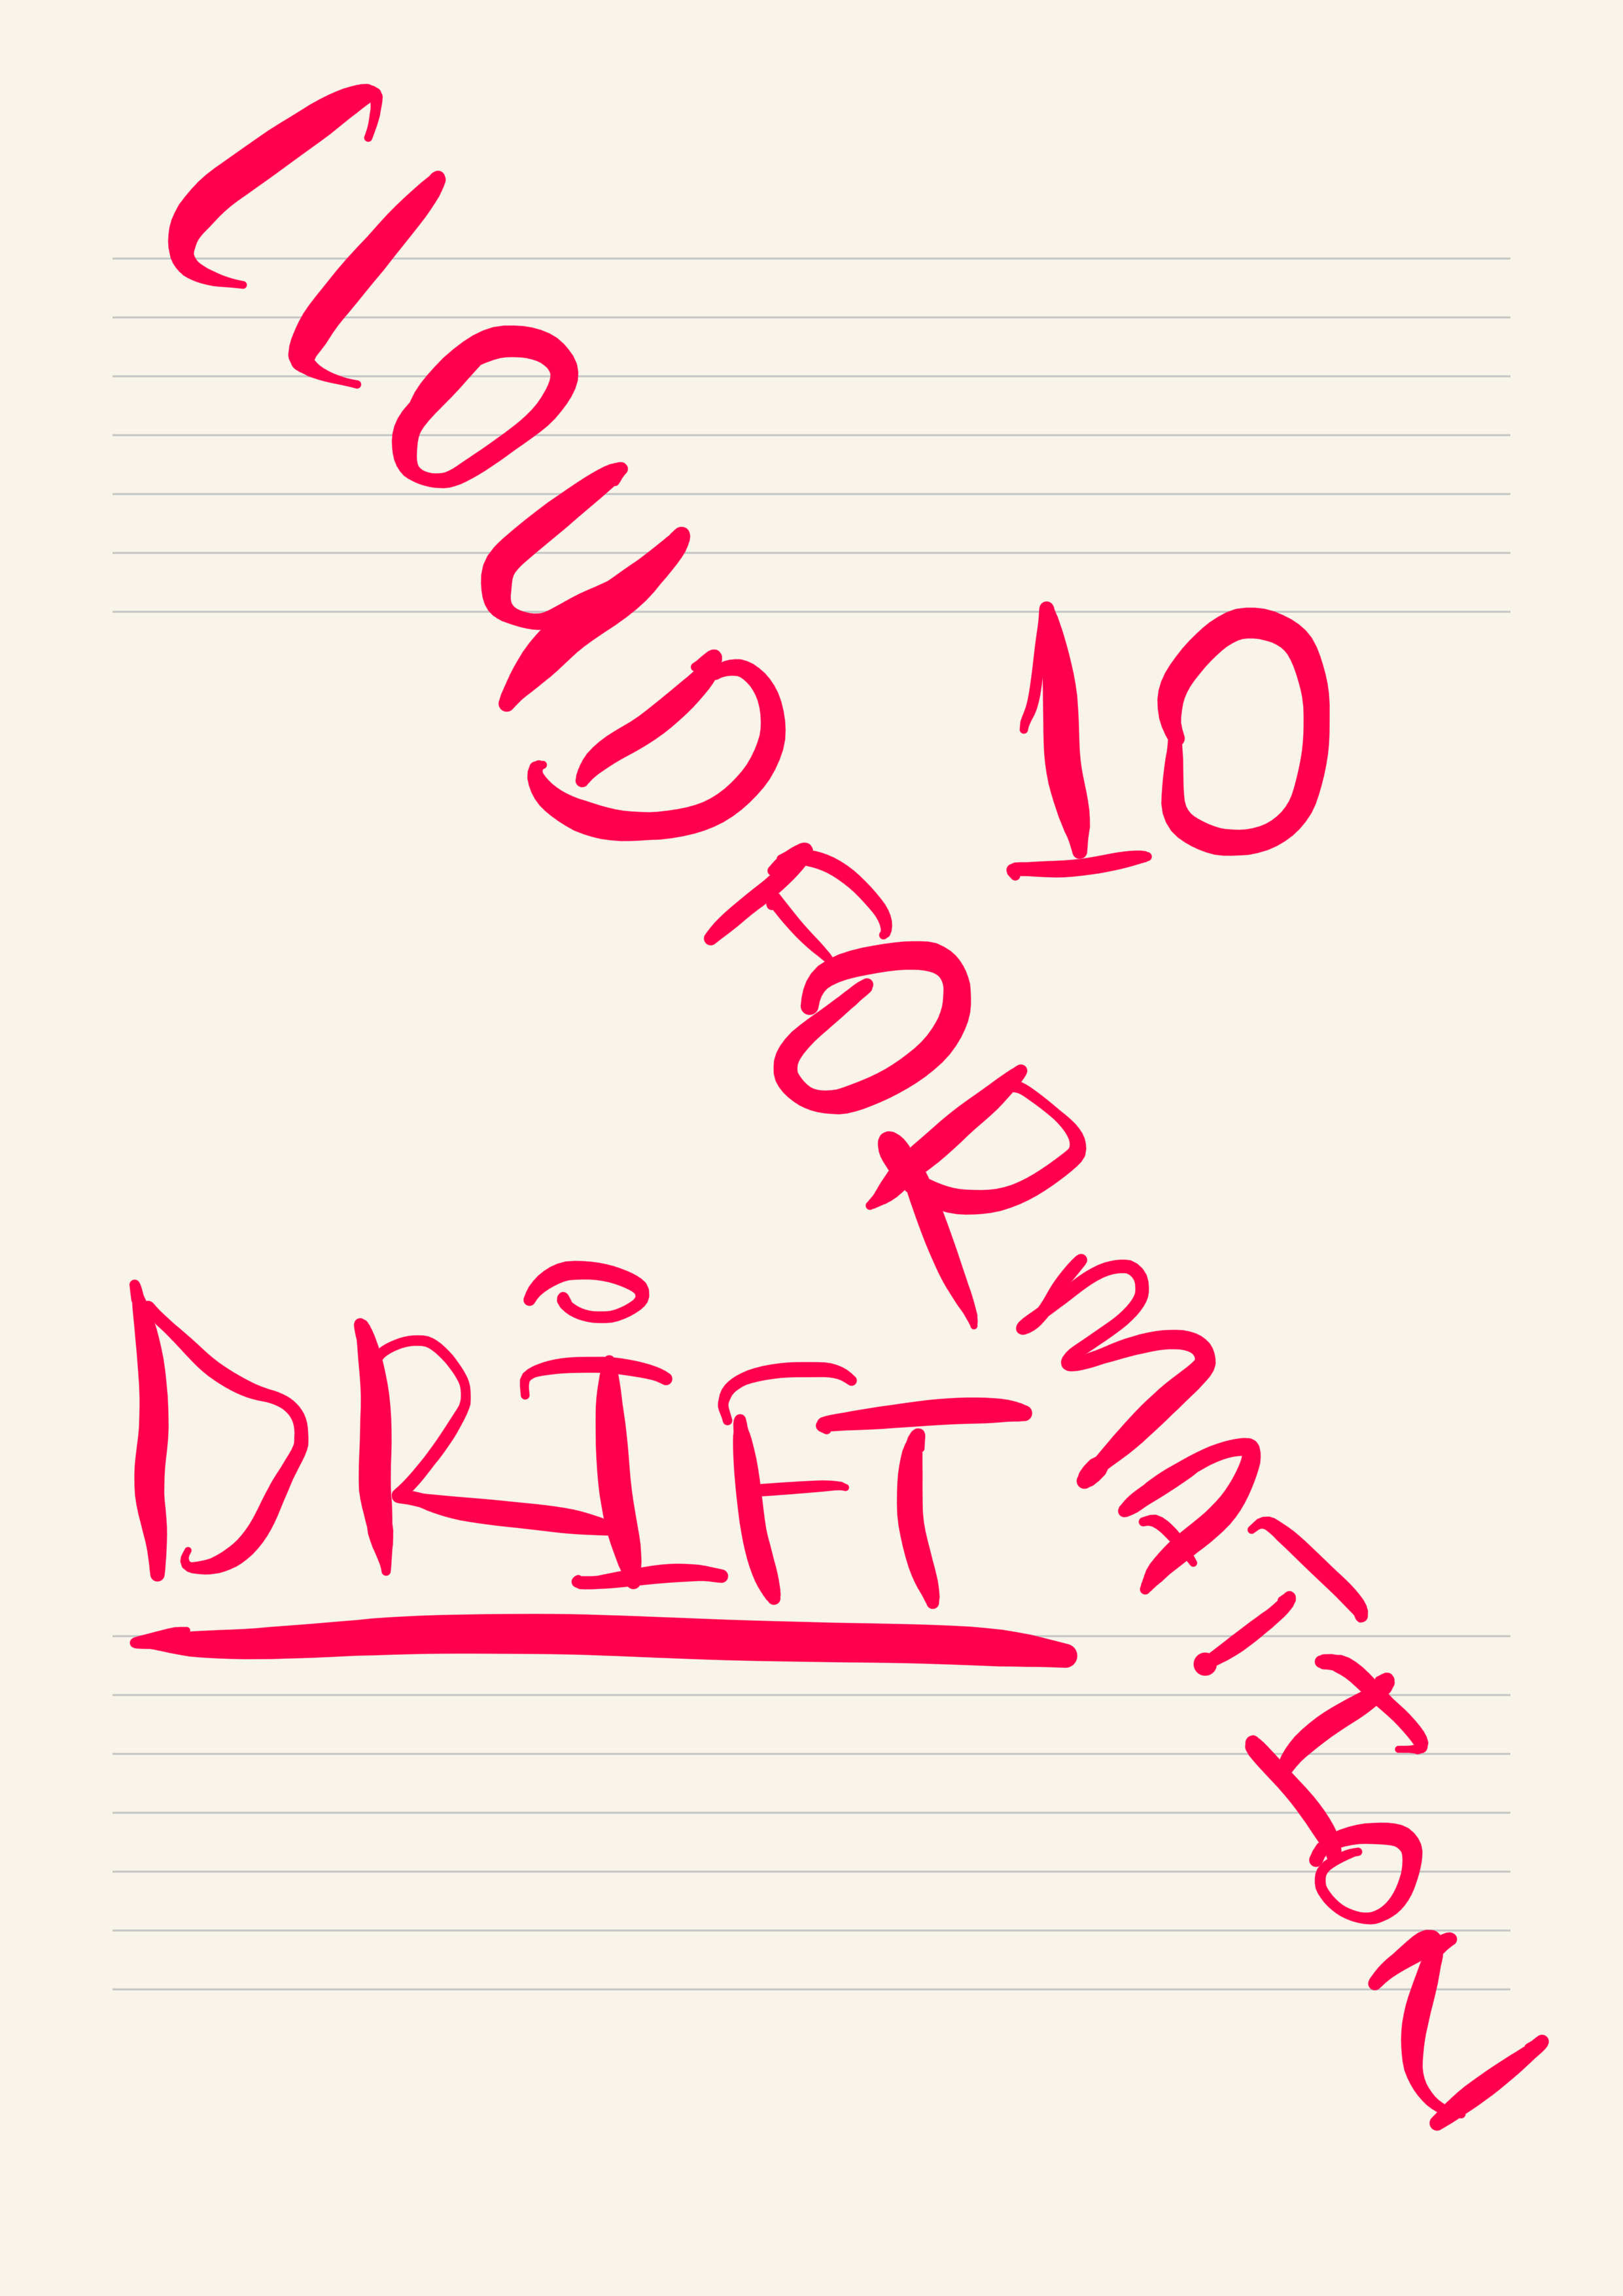 CLOUD FORMATION
10
DRIFT